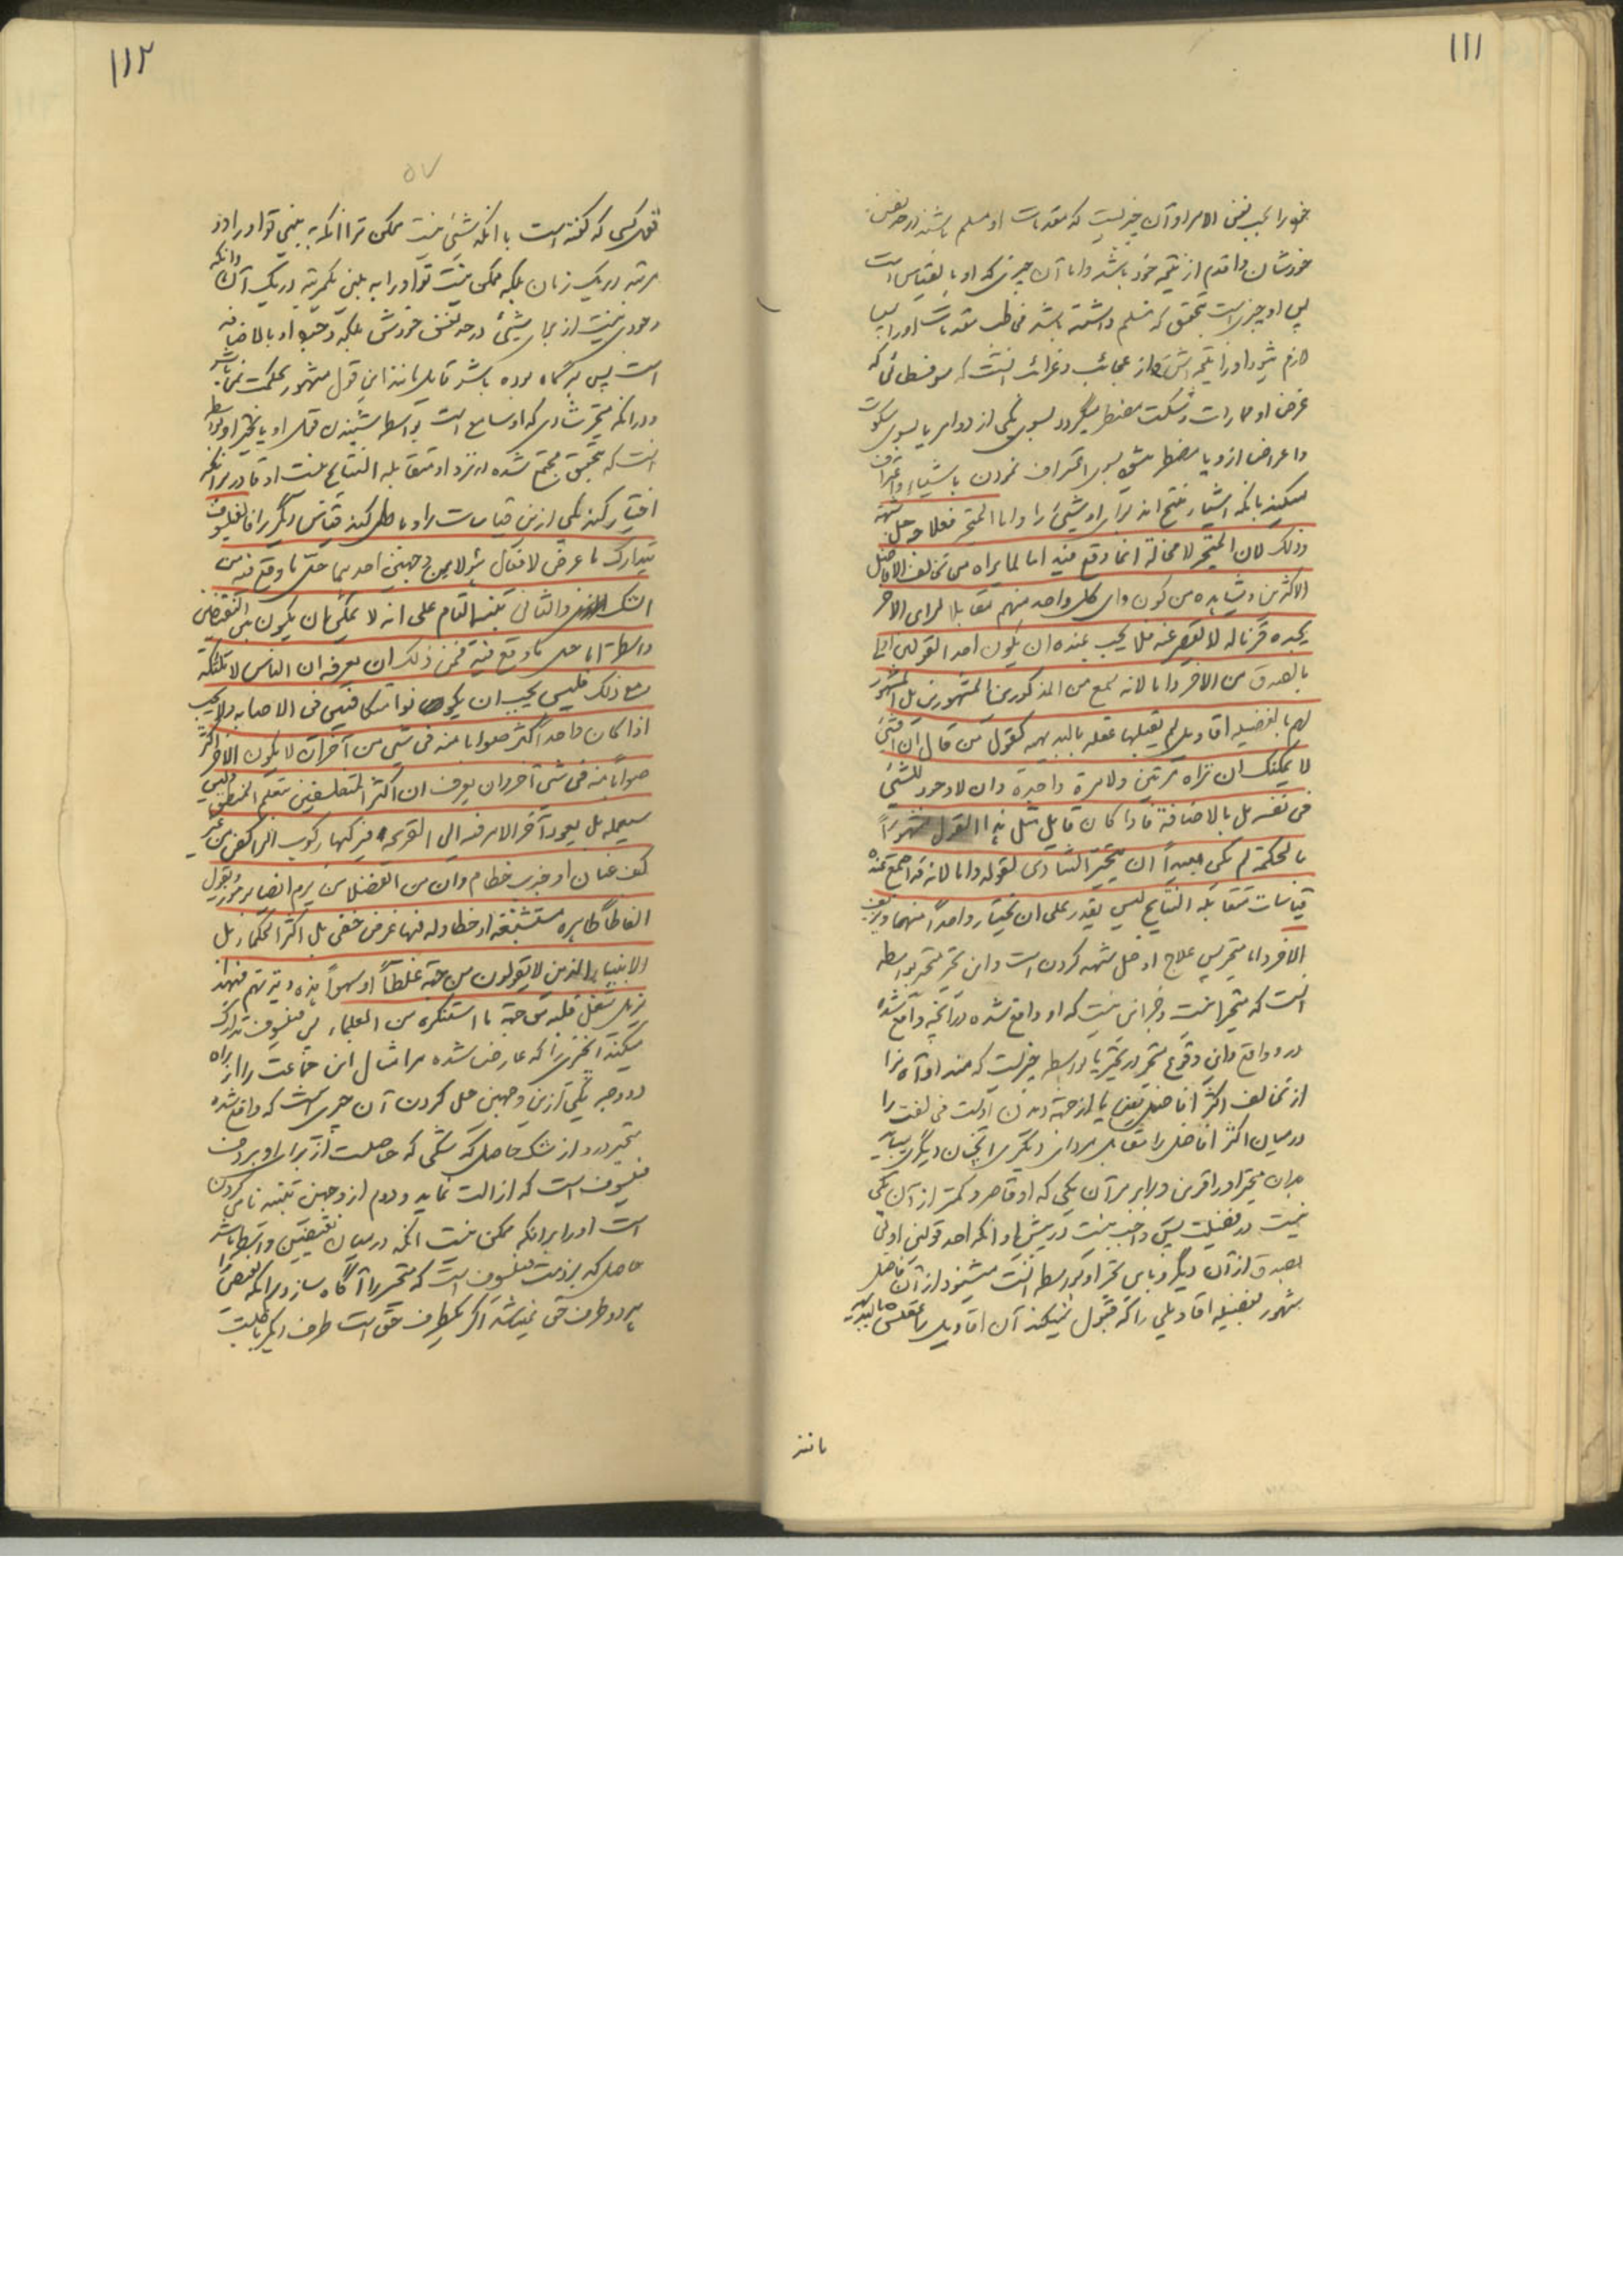 ۱۱۱
خود را بحسب نفس الامر و آن چیزیست که مقدمات او مسلم باشند در حد نفس
خودشان و اقدم از نتیجه خود باشد و اما آن چیزی که او بالقیاس است
پس او چیزی است بتحقیق که تسلم داشته باشد مخاطب مقدمات او را پس
لازم شود او را نتیجه اش و از عجائب و غرائب آنست که سوفسطائی که
غرض او ممارات است مضطر میگردد بسوی یکی از دو امر یا بسوی سکوت
و اعراض ازو یا مضطر میشود بسوی اعتراف نمودن باشیاء و اعتراف
میکند بانکه اشیاء منتج اند برای او شیئ را و اما المتحیر فعلاجه حل شبهه
و ذلک لان المتحیر لا محالة انما وقع فیه اما لما یراه من تخالف الافاضل
الاکثرین و یشاهده من کون رای کل واحد منهم مقابلا لرای الاخر الذی
یجده قرنا له لا یقصر عنه فلا یجب عنده ان یکون احد القولین اولی
بالصدق من الاخر و اما لانه سمع من المذکورین المشهورین المشهود
لهم بالفضیله اقاویل لم یقبلها عقله بالبدیهه کقول من قال ان الشئ
لا یمکنک ان تراه مرتین و لا مرة واحدة و ان لا وجود للشئ
فی نفسه بل بالاضافة فاذا کان قایل مثل هذا القول مشهوراً
بالحکمة لم یکن بعیداً ان یتحیر الشادی لقوله و اما لانه قد اجتمع عنده
قیاسات متقابلة النتایج لیس یقدر علی ان یختار واحداً منهما و یزیف
الاخر و اما متحیر پس علاج او حل شبهه کردن است و این تحیر متحیر بواسطه
آنست که متحیر نیست و جز این نیست که او واقع شده در آنچه واقع شده
درو و واقع و این وقوع متحیر در تحیر یا بواسطه چیزیست که میبیند او آن را
از تخالف اکثر افاضل
در میان اکثر افاضل را مقابل مر رای دیگری آنچنان دیگری بیابد
مر آن متحیر او را قرین و برابر مر آن یکی که او قاصر و کمتر از آن یکی
نیست در فضیلت پس واجب نیست در پیش او آنکه احد قولین اولی
بصدق از آن دیگر و یا این تحیر او بواسطه آنست میشنود از آن فاضل
مشهور بفضیله اقاویلی را که قبول نمیکند آن اقاویل را عقلش بالبدیهه
مانند
۱۱۲
۵۷
قول کسی که گفته است بانکه شیئ نیست ممکن ترا انکه به بینی تو او را دو
مرتبه در یک زمان بلکه ممکن نیست تو او را به بینی یکمرتبه در یک آن و انکه
وجودی نیست از برای شیئ در حد نفس خودش بلکه وجود او بالاضافه
است پس هرگاه بوده باشد قایل مانند این قول مشهور بحکمت نمی باشد
دور انکه متحیر شادی که او سامع است بواسطه شنیدن قول او یا تحیر او بواسطه
آنست که بتحقیق مجتمع شده نزد او متقابله النتایج نیست او قادر بر انکه
اختیار کند یکی ازین قیاسات را و باطل کند قیاس دیگر را فالفیلسوف
یتدارک ما عرض لامثال هؤلاء من وجهین احدهما حل ما وقع فیه من
الشک والثانی تنبیهه التام علی انه لا یمکن ان یکون بین النقیضین
واسطة اما حل ما وقع فیه فمن ذلک ان یعرفه ان الناس لا ملائکه
و مع ذلک فلیس یجب ان یکونوا متکافئین فی الاصابه و لا یجب
اذا کان واحد اکثر صوابا منه فی شئ من آخر ان لا یکون الاخر اکثر
صواباً منه فی شئ آخر و ان یعرف ان اکثر المتفلسفین یتعلم المنطق و لیس
یستعمله بل یعود آخر الامر فیه الی القریحه فیرکبها رکوب الراکض من غیر
کف عنان او جذب خطام و ان من الفضلاء من یرمز ایضا برموز و یقول
الفاظاً ظاهره مستشنعه او خطا و له فیها غرض خفی بل اکثر الحکماء بل
الانبیاء الذین لا یؤتون من جهة غلطاً او سهواً هذه وتیرتهم فهذا
یزیل شغل قلبه من جهة ما استنکره من العلماء پس فیلسوف تدارک
میکند آنچیزی را که عارض شده مر امثال این جماعت را از راه
دو وجه یکی ازین وجهین حل کردن آن چیزی است که واقع شده
متحیر درو از شک حاصل که شکی که حاصلست از برای او بر ذمت
فیلسوف است که ازالت نماید و دوم از وجهین تنبیه تامی کردن
است او را بر انکه ممکن نیست انکه در میان نقیضین واسطه باشد
حاصل که بر ذمت فیلسوف است که متحیر را آگاه سازد بر انکه نقیضین را
هر دو طرف حق نمیباشد اگر یکطرف حق است طرف دیگر باطلست